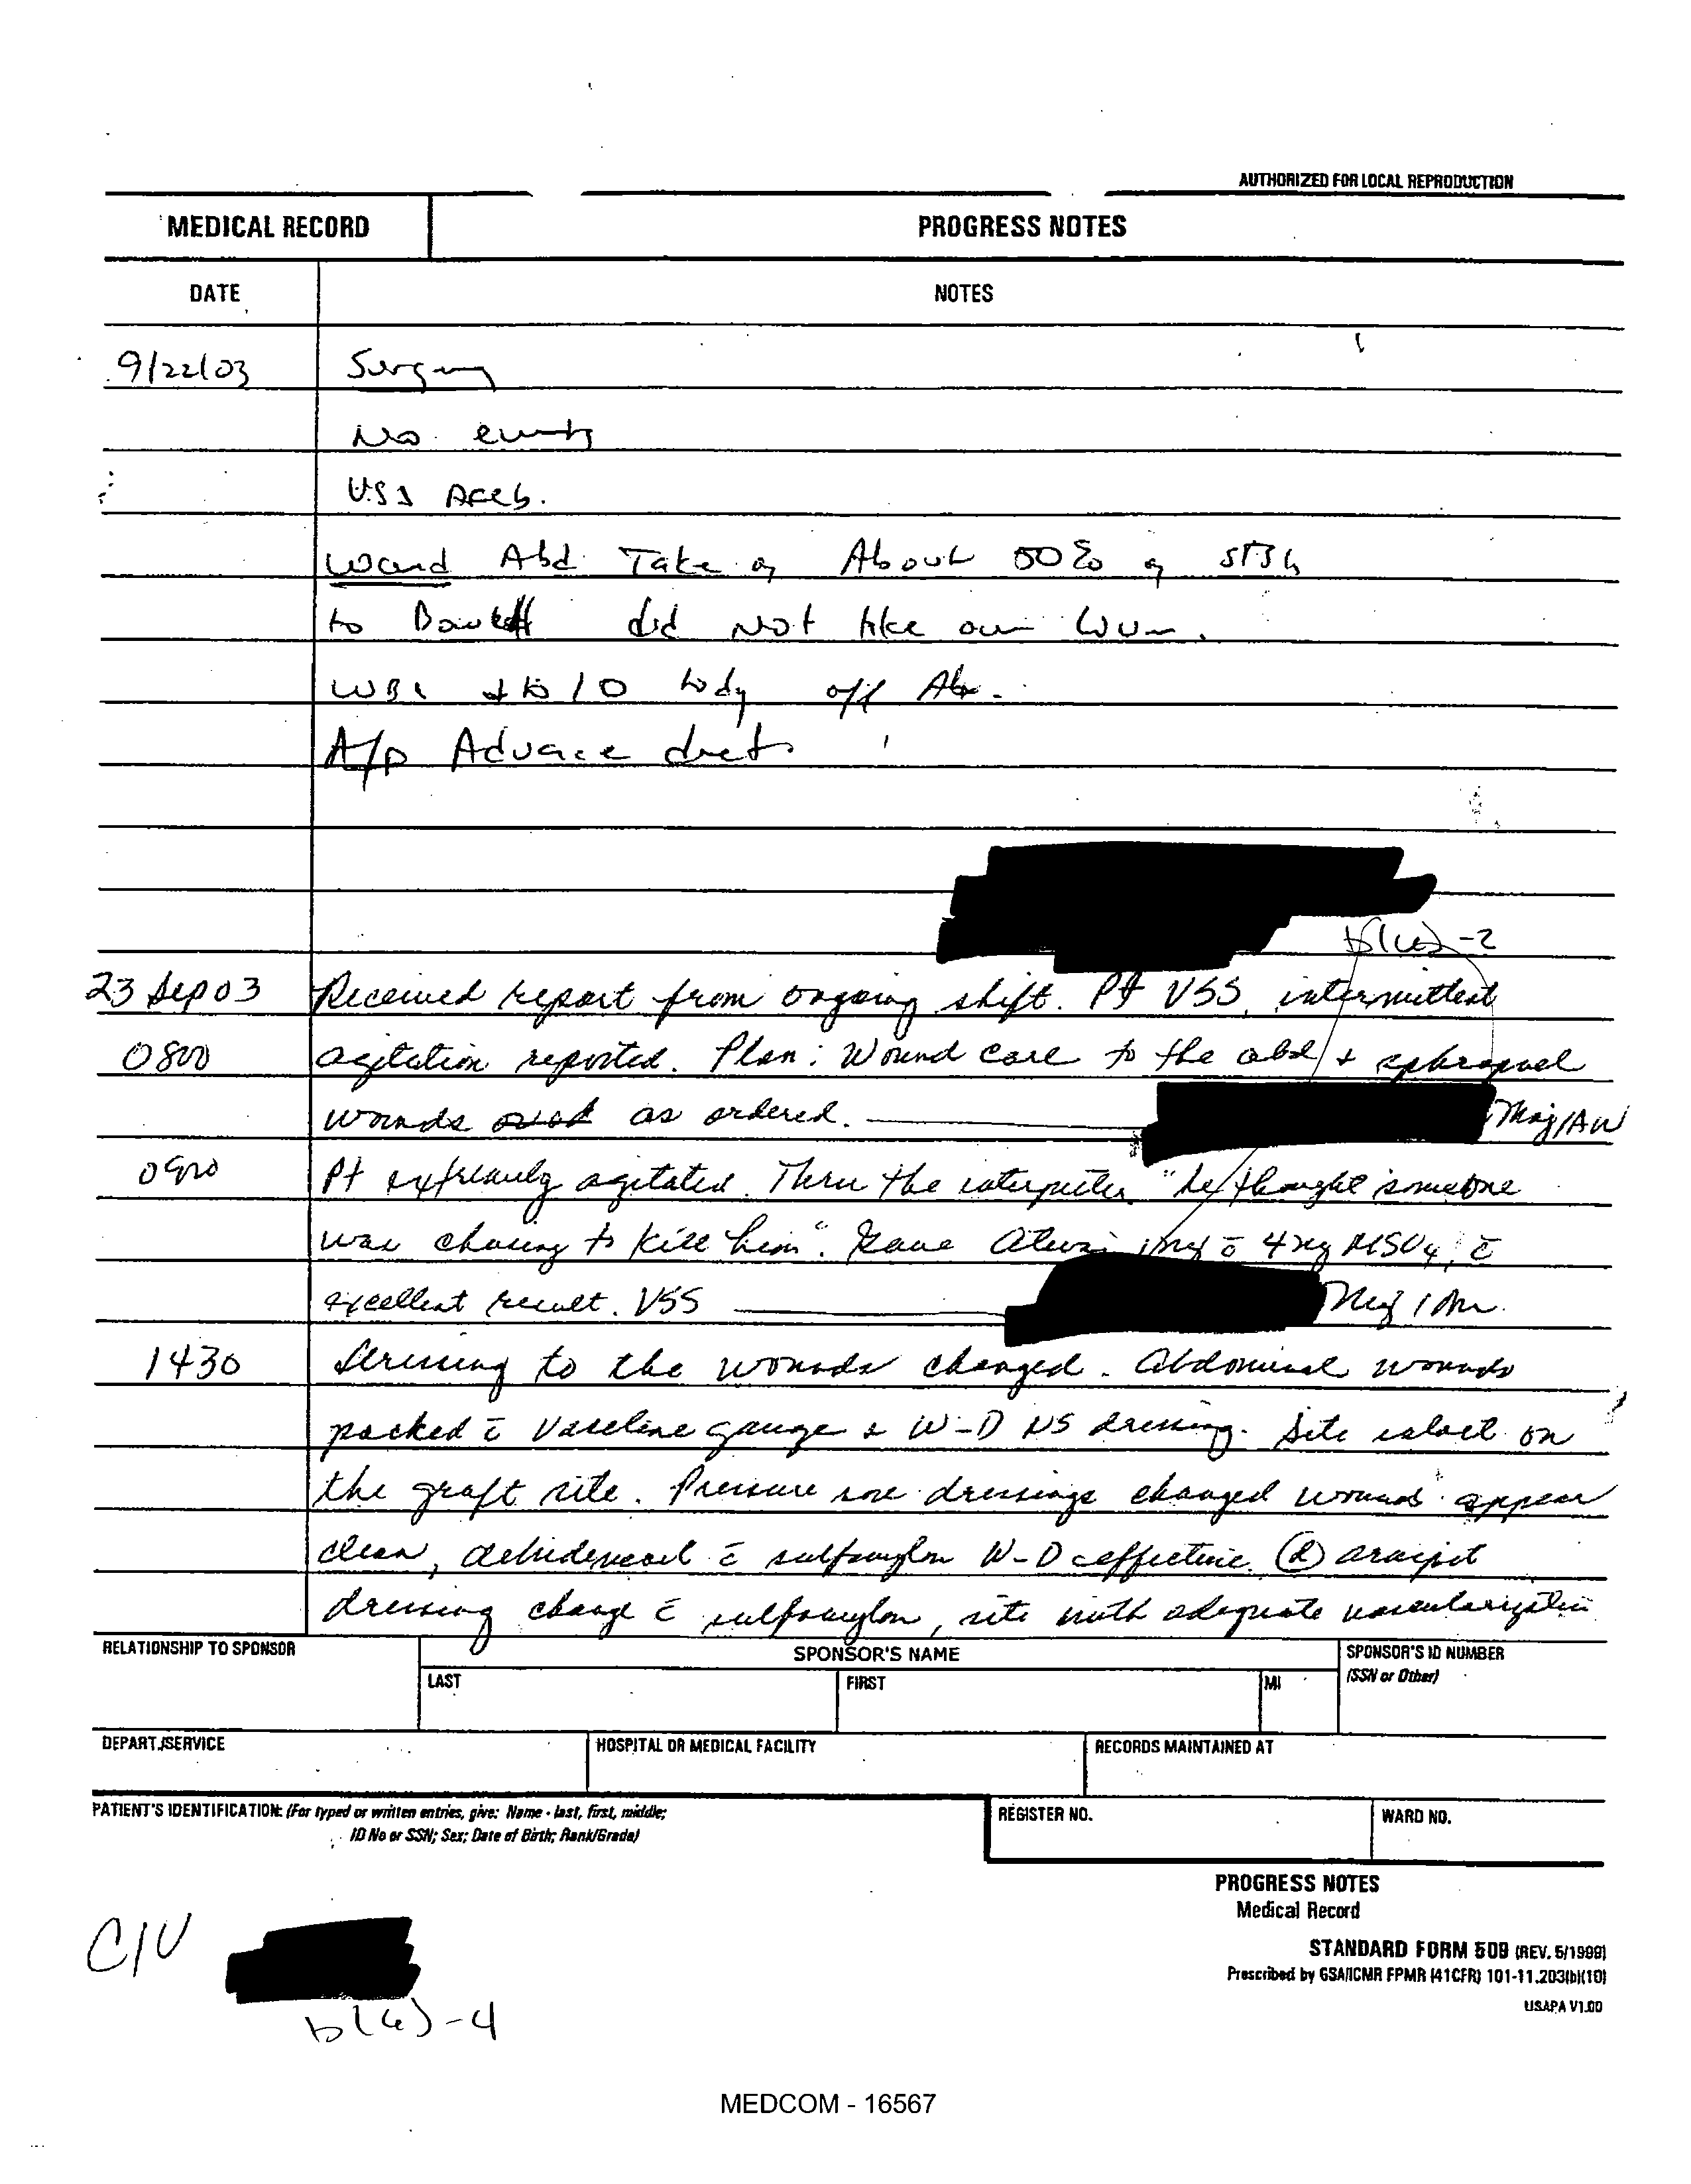 AUTHORIZED FOR LOCAL REPRODUCTION
MEDICAL RECORD PROGRESS NOTES
DATE NOTES
9/22/03 Surgery
No events
VSS AFeb.
Wound Abd. Take of About 50% of STSG
to Bowel did not take over
WBC ↓ to 10 today off Abx.
A/P Advance diet.
b(6)-2
23 Sep 03 Received report from ongoing shift. Pt VSS, intermittent
0800 agitation reported. Plan: Wound care to the abd &
wounds as ordered. Maj/AN
0900 Pt extremely agitated. Thru the interpreter "he thought someone
was chasing to kill him". Gave Ativan 1mg c̄ 4mg MSO4, c̄
excellent result. VSS Maj/AN
1430 Dressing to the wounds changed. Abdominal wounds
packed c̄ Vaseline gauge & W-D NS dressing. Site intact on
the graft site. Pressure sore dressings changed wounds appear
clean, debridement c̄ sulfamylon W-D effective. armpit
dressing change c̄ sulfamylon, site with adequate vascularization
RELATIONSHIP TO SPONSOR SPONSOR'S NAME SPONSOR'S ID NUMBER
LAST FIRST MI (SSN or Other)
DEPART./SERVICE HOSPITAL OR MEDICAL FACILITY RECORDS MAINTAINED AT
PATIENT'S IDENTIFICATION: (For typed or written entries, give: Name - last, first, middle;
ID No or SSN; Sex; Date of Birth; Rank/Grade)
REGISTER NO. WARD NO.
PROGRESS NOTES
Medical Record
STANDARD FORM 509 (REV. 5/1999)
Prescribed by GSA/ICMR FPMR (41CFR) 101-11.203(b)(10)
USAPA V1.00
CIV
b(6)-4
MEDCOM - 16567